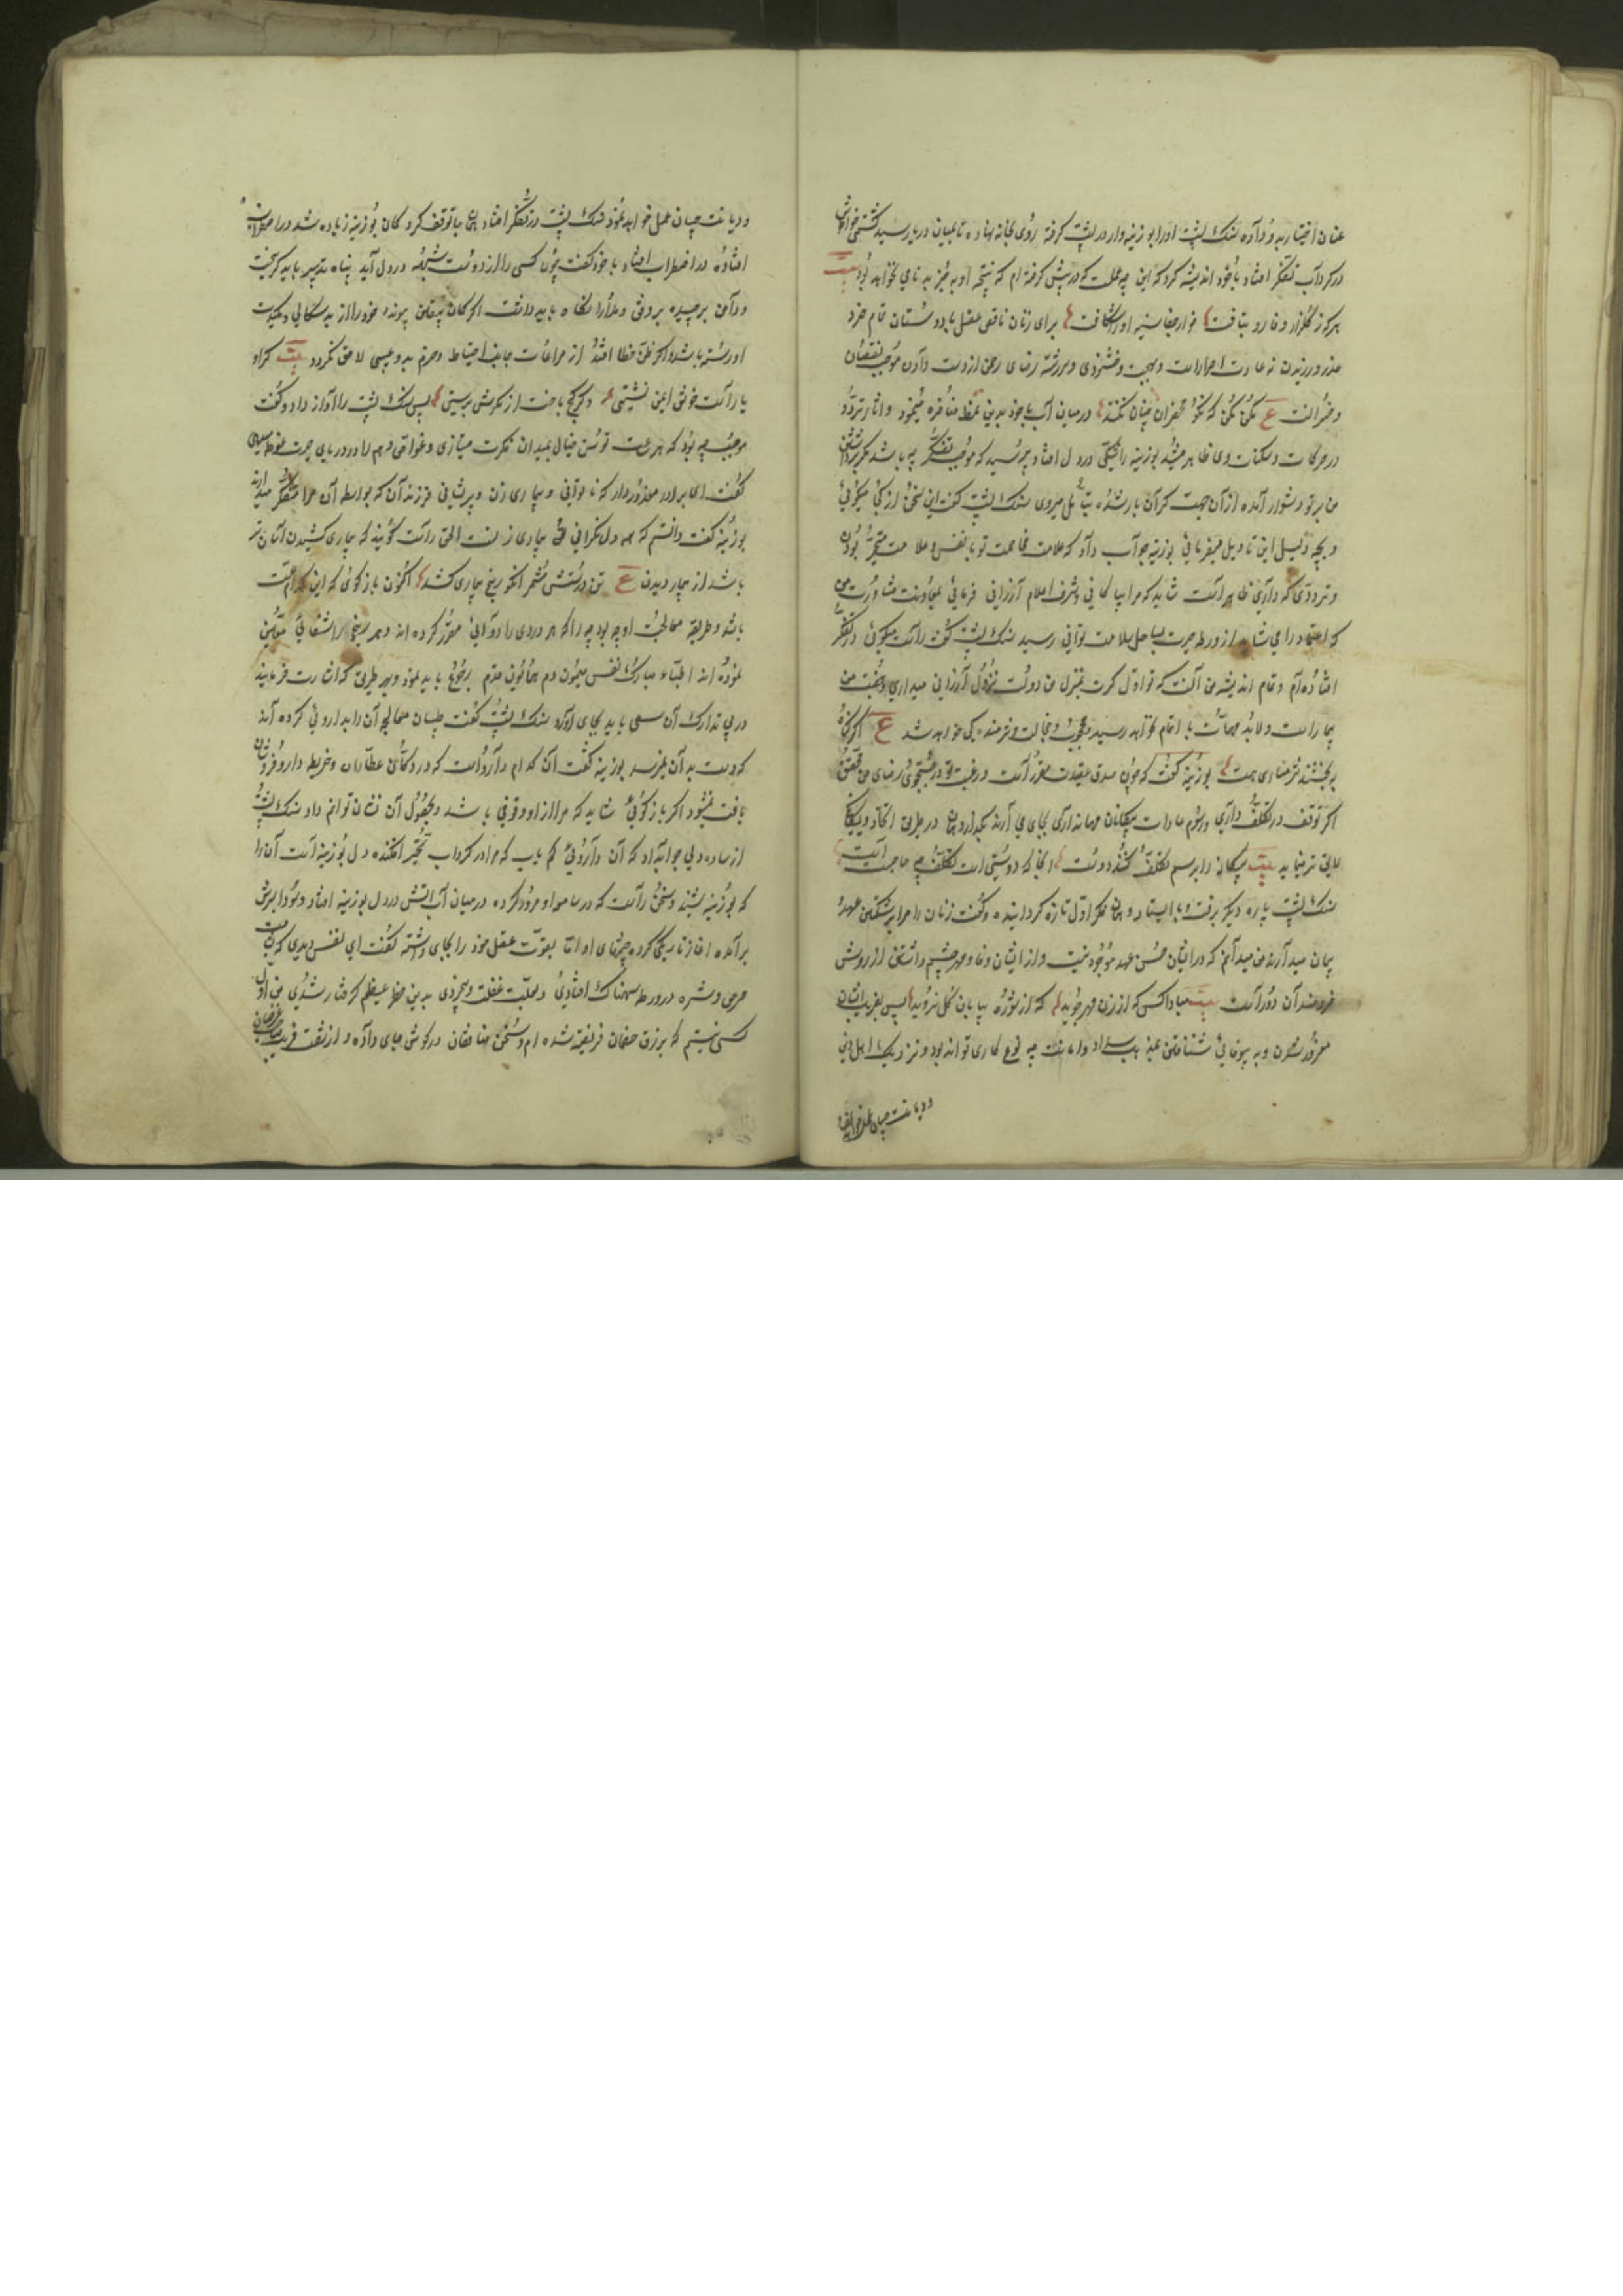 عنان اختیار بدو داده سنک پشت اورا بوزینه وار در پشت کرفته روی بخانه نهاده تا بمیان دریا رسید کشتی خواطرش
در کرداب تفکر افتاد باخود اندیشه کرد که این چه عملست که در پیش کرفته ام که نتیجه او بجز بدنامی نخواهد بود بیت
هرکه از کلزار وفا رو بتافت خار جفا سینه او را شکافت برای زنان ناقص عقل با دوستان تمام خرد
غدر ورزیدن نه عادت احرارست و بجهت خشنودی سررشته رضای رحمن از دست دادن موجب نقصان
و خسرانست ع مکن مکن که نکو محضران چنان نکنند در میان آب باخود بدین نمط مناظره مینمود و اثار تردد
در حرکات و سکنات وی ظاهر میشد بوزینه را شکی در دل افتاد پرسید که موجب تفکر چه باشد مکر برداشتن
من بر تو دشوار آمده از آن جهت کران بار شده بتأمل میروی سنک پشت کفت این سخن از کجا میکوئی
و بچه دلیل این تاویل میفرمائی بوزینه جواب داد که علامت مخاصمت تو با نفس و علامت متحیر بودن
و ترددی که داری ظاهر است شاید که مرا بیاکاهانی و شرف اعلام ارزانی فرمائی بمعاونت مشاورت من
که اعتماد را می شاید از ورطه حیرت بساحل سلامت توانی رسید سنک پشت کفت راست میکوئی در تفکر
افتاده ام و تمام اندیشه من آنست که تو اول کرت بمنزل من دولت نزول ارزانی میداری و جفت من
بیمار است ولابد مهمات با اتمام نخواهد رسید و موجب خجالت و شرمندکی خواهد شد ع اکر کناه
ببخشند شرمساری هست بوزینه کفت که چون صدق عقیدت مقرر است و رغبت تو در جستجوی رضای من محقق
اکر توقف در تکلف داری و رسوم عادات بیکانان مهمانداری بجای می ارند بکذاردن در طریق اتحاد و یکانکی
لایق تر نماید بیت بیکانه را برسم تکلف کنند دوست انجا که دوستی است تکلف چه حاجت است
سنک پشت پاره دیکر برفت و بایستاد و همان فکر اول تازه کردانیده و کفت زنان را مرا بر شکستن عهد
پیمان میدارند من میدانم که در ایشان حسن عهد موجود نیست و از ایشان وفا و مهر چشم داشتن از روش
خردمندان دور است بیت مبادا کس که از زن مهر جوید که از شوره بیابان کل نروید پس بفریب ایشان
مغرور شدن و به بیوفائی شتافتن بمذهب سداد و امانت چه نوع کاری تواند بود و نزدیک اهل دین
و دیانت چسان عمل خواهد نمود
و دیانت چسان عمل خواهد نمود سنک پشت در تفکر افتاد همان جا توقف کرد کمان بوزینه زیاده شد در اضطراب
افتاده در اضطراب افتاد باخود کفت چون کسی را از دوست شبهه در دل آید پناه بتدبیر باید کریخت
و دامن برچیده برفق و مدارا نکاه باید داشت اکر کمان بیقین پیوندد خود را از بدسکالی و مکیدت
او رسته باشد و اکر ظن خطا افتد از مراعات جانب احتیاط و حزم بدو عیبی لاحق نکردد بیت کر او
یار است خوش ایمن نشینی و کر کج باخت از مکرش پرستی پس سنک پشت را آواز داد و کفت
موجب چه بود که هر ساعت توسن خیال بمیدان فکرت میتازی و غواص وهم را در دریای حیرت غوطه میدهی
کفت ای برادر معذور دار که ناتوانی و بیماری زن و پریشانی فرزندان که بواسطه آن مرا متفکر میدارند
بوزینه کفت دانستم که همه دل نکرانی تو بیماری زنست الحق راست کویند که بیماری کشیدن آسان تر
باشد از بیمار دیدن ع تن درستش مشمر انکو رنج بیماری کشد اکنون بازکوی که این کدام علت
باشد و طریقه معالجت او چه بود چه را که هر دردی را دوائی مقرر کرده اند و هر رنجی را شفائی معین
نموده اند اطباء مبارک نفس میمون دم همایون قدم رجوع باید نمود و بهر طریق که اشارت فرمایند
در پی تدارک آن سعی باید بجای آورد سنک پشت کفت طبیبان معالجه آن را بداروئی کرده اند
که دست به آن نمیرسد بوزینه کفت آن کدام دارو است که در دکان عطاران و خریطه داروفروشان
یافت نمیشود اکر بازکوئی شاید که مرا از او وقوفی باشد و بحصول آن نشان توانم داد سنک پشت
از ساده دلی جواب داد که آن داروئی کم یاب که مرا در کرداب تحیر افکنده دل بوزینه است آن را
که بوزینه بشنید و سخن راست که در سامعه او مرور کرده در میان آب آتش در دل بوزینه افتاد و دود از سرش
برآمده اغاز تاریکی کرده چشمهای او اما بقوت عقل خود را بجای داشته کفت ای نفس دیدی که بشآمت
حرص و شره در ورطه سهمناک افتادی و بعلت غفلت و بیخردی بدین خطر عظیم کرفتار شدی من اول
کسی نیستم که برزق خصمان فریفته شده ام و سخن منافقان در کوش جای داده و از شست فریب